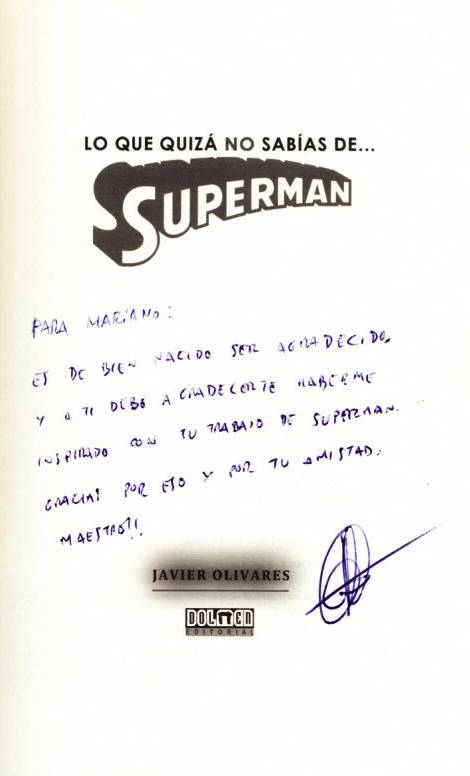 LO QUE QUIZÁ NO SABÍAS DE...
SUPERMAN
PARA MARIANO:
ES DE BIEN NACIDO SER AGRADECIDO,
Y A TI DEBO AGRADECERTE HABERME
INSPIRADO CON TU TRABAJO DE SUPERMAN.
GRACIAS POR ESO Y POR TU AMISTAD,
MAESTRO!!
JAVIER OLIVARES
DOLMEN
EDITORIAL